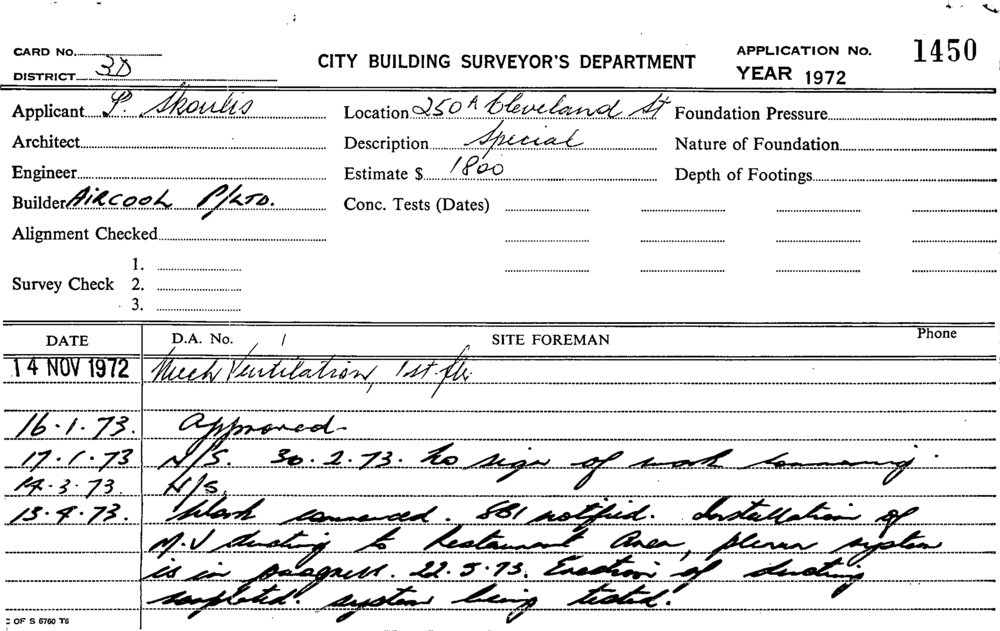 CARD No. APPLICATION No. 1450
CITY BUILDING SURVEYOR'S DEPARTMENT
DISTRICT 3D YEAR 1972
Applicant P. Skoulis Location 250A Cleveland St Foundation Pressure
Architect Description Special Nature of Foundation
Engineer Estimate $ 1800 Depth of Footings
Builder AIRCOOL P/LTD. Conc. Tests (Dates)
Alignment Checked
1.
Survey Check 2.
3.
DATE D.A. No. / SITE FOREMAN Phone
14 NOV 1972 Mech Ventilation, 1st flr.
16.1.73. Approved.
17.1.73 N/S. 30.2.73. No sign of work commencing.
14.3.73. N/S.
13.4.73. Work commenced. SBI notified. Installation of
M.V ducting to Restaurant Area, plenum system
is in progress. 22.5.73. Erection of ducting
completed. system being tested.
C OF S 6760 T6